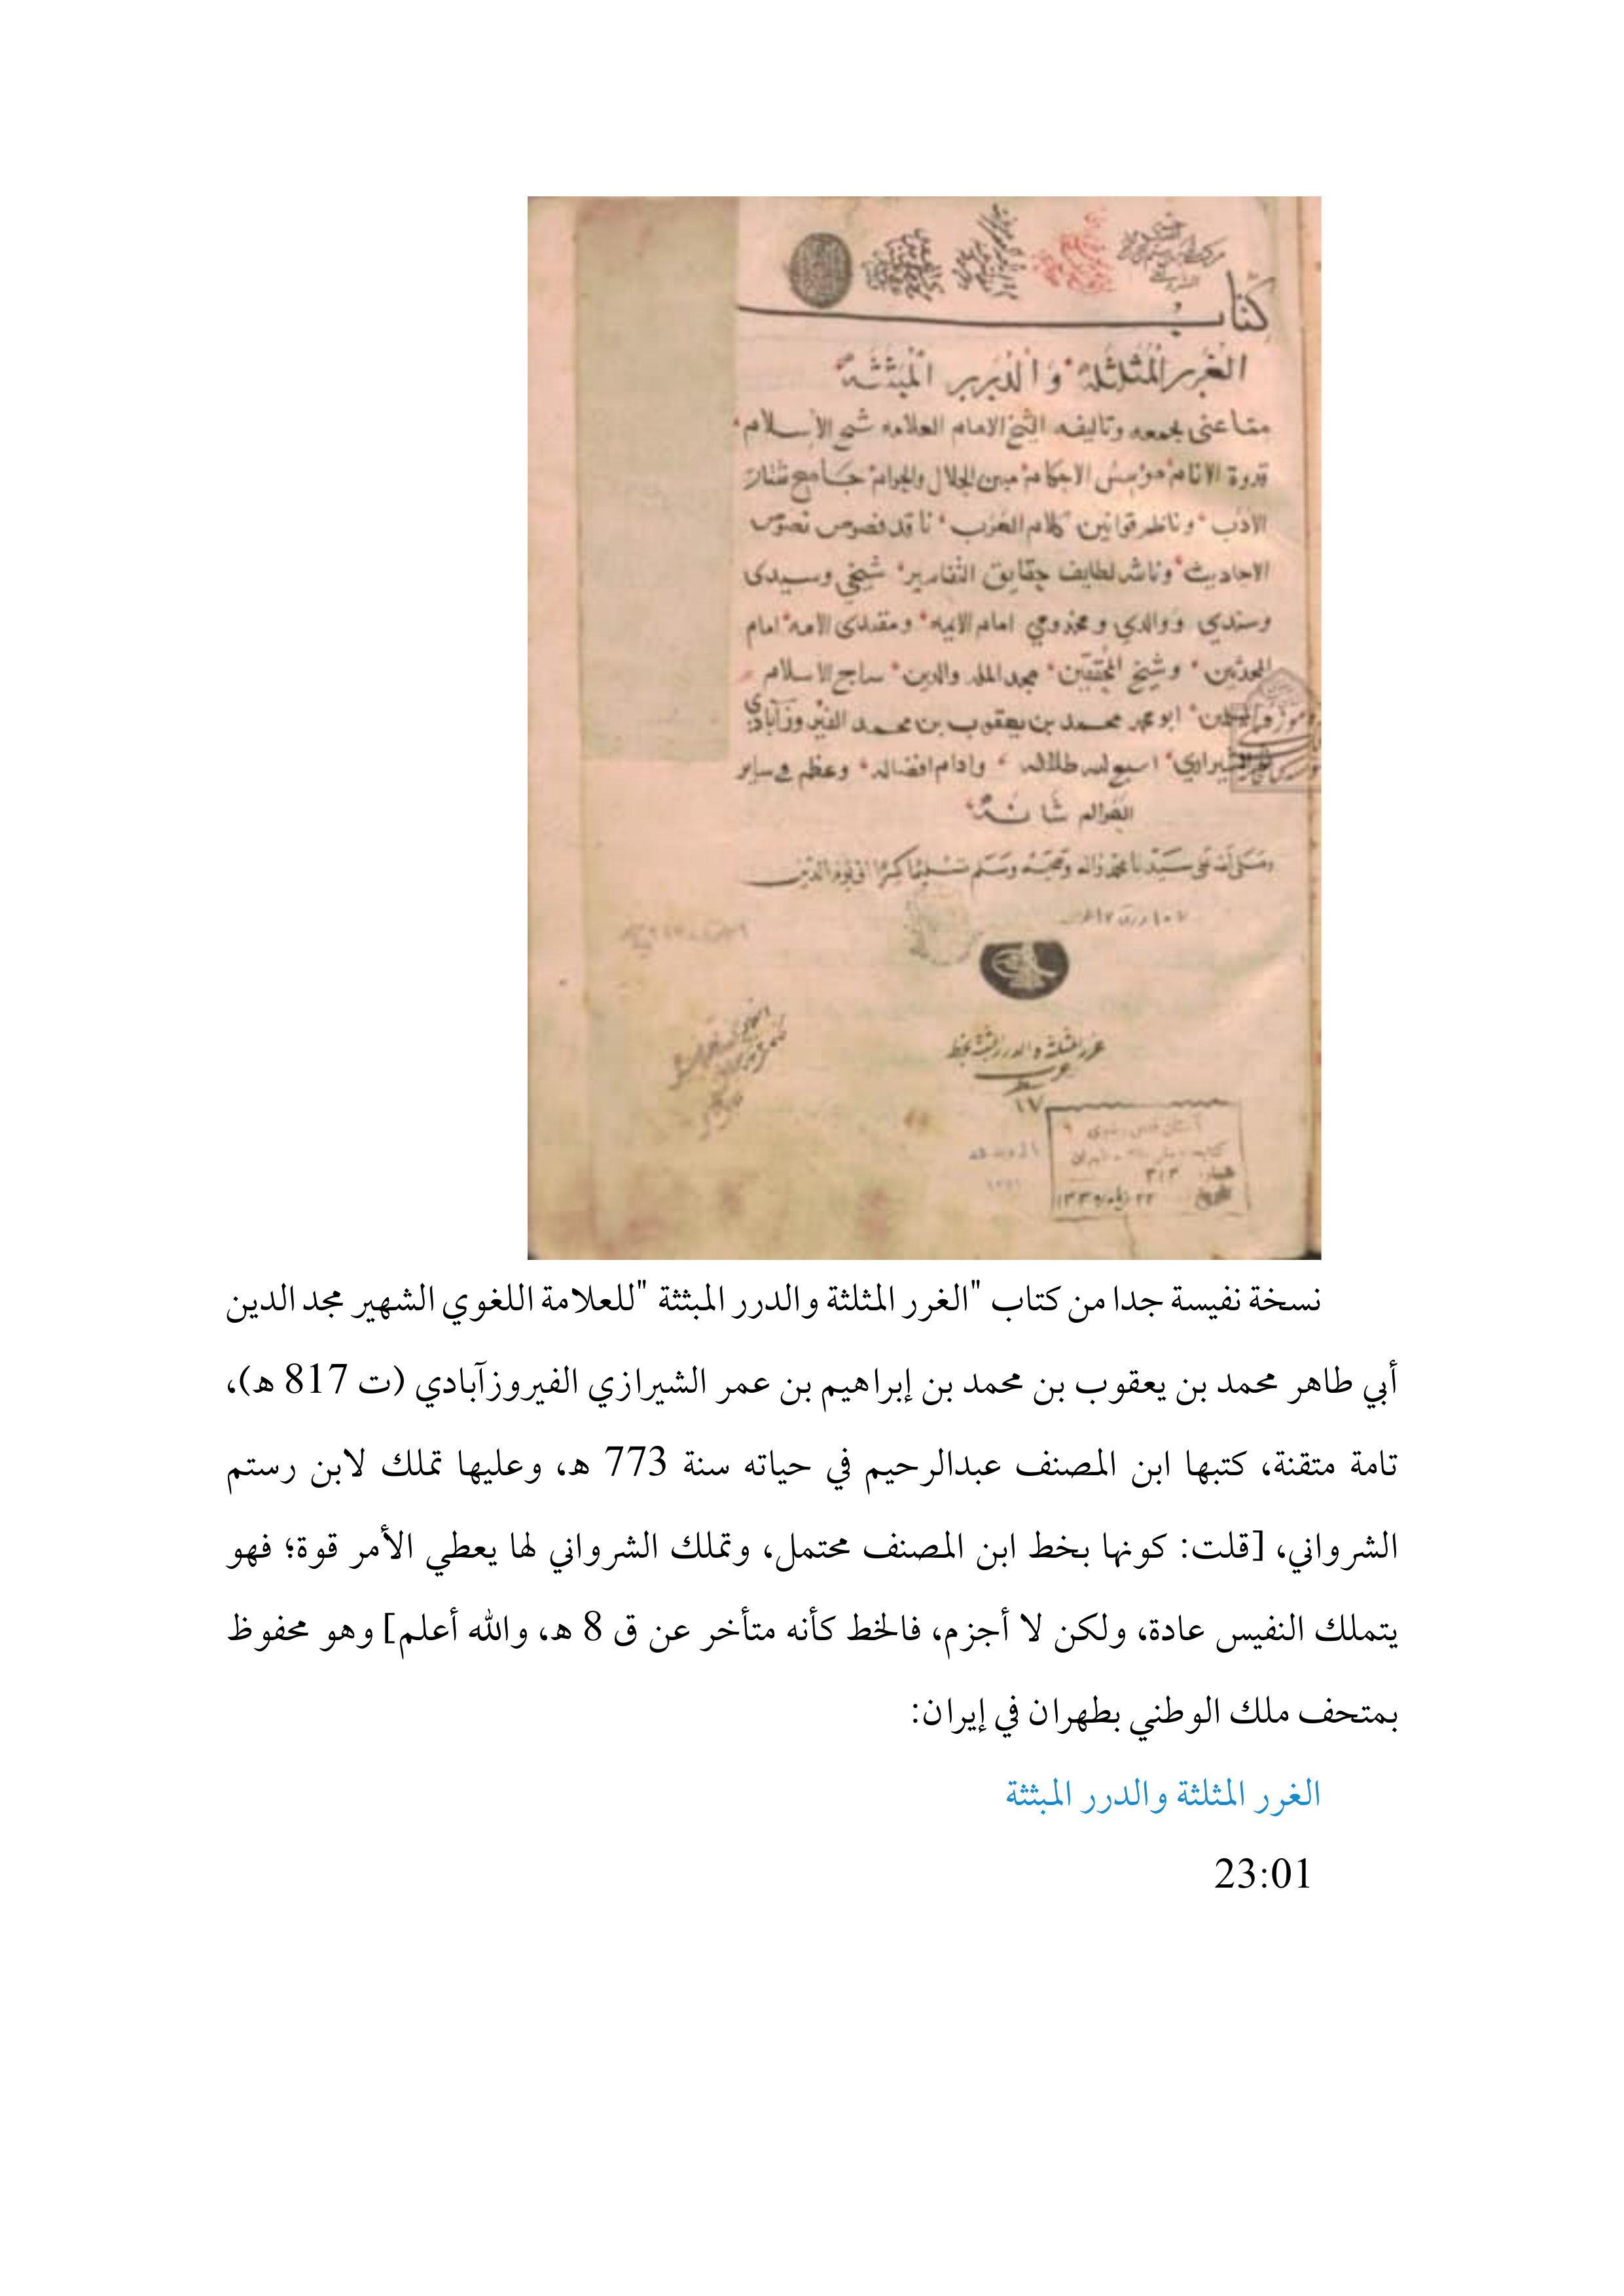 كتاب
الغرر المثلثة والدرر المبثثة
مما عنى بجمعه وتاليفه الشيخ الامام العلامه شيخ الاسلام
قدوة الانام مؤسس الاحكام مبين الحلال والحرام جامع شتات
الادب وناظم قوانين كلام العرب ناقد فصوص نصوص
الاحاديث وناشر لطايف حقايق التفاسير شيخي وسيدى
وسندي ووالدي ومخدومي امام الايمه ومقتدى الامه امام
المحدثين وشيخ المحققين مجد المله والدين الاسلام
ابو محمد بن يعقوب بن محمد الفيروزآبادي
الشيرازي اسبغ الله ظلاله وادام افضاله وعظم في ساير
العوالم شانه
وصلى الله على سيدنا محمد واله وصحبه وسلم تسليما كثيرا الى يوم الدين
غرر المثلثة والدرر المبثثة بخط
عرب
١٧
آستان قدس رضوى
شماره ٣١٣
تاريخ
نسخة نفيسة جدا من كتاب "الغرر المثلثة والدرر المبثثة "للعلامة اللغوي الشهير مجد الدين
أبي طاهر محمد بن يعقوب بن محمد بن إبراهيم بن عمر الشيرازي الفيروزآبادي (ت 817 ه)،
تامة متقنة، كتبها ابن المصنف عبدالرحيم في حياته سنة 773 ه، وعليها تملك لابن رستم
الشرواني، [قلت: كونها بخط ابن المصنف محتمل، وتملك الشرواني لها يعطي الأمر قوة؛ فهو
يتملك النفيس عادة، ولكن لا أجزم، فالخط كأنه متأخر عن ق 8 ه، والله أعلم] وهو محفوظ
بمتحف ملك الوطني بطهران في إيران:
الغرر المثلثة والدرر المبثثة
23:01